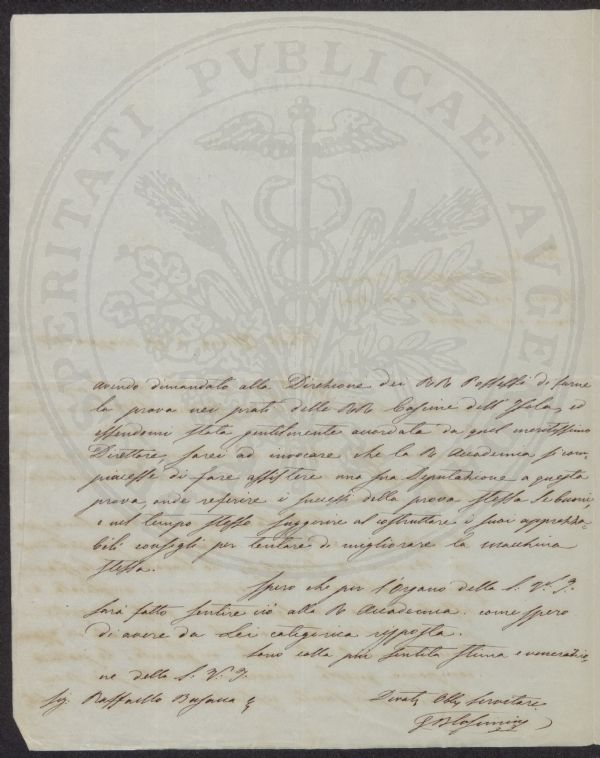 PROSPERITATI PVBLICAE AVGE
avendo dimandato alla Direzione dei RR Possessi di farne
la prova nei prati delle RR Cascine dell'Isola, ed
essendomi stata gentilmente accordata da quel meritissimo
Direttore, sarei ad invocare che la R Accademia si com=
piacesse di fare assistere una sua Deputazione a questa
prova, onde referire i successi della prova stessa se buoni,
e nel tempo stesso suggerire al costruttore i suoi apprezza=
bili consigli per tentare di migliorare la macchina
stessa.
Spero che per l'Organo della S. V. I.
sarà fatto sentire ciò alla R Accademia. come spero
di avere da Lei categorica risposta.
Sono colla più sentita stima e venerazio=
ne della S. V. I.
Sig. Raffaello Busacca
Devot. Obb. Servitore